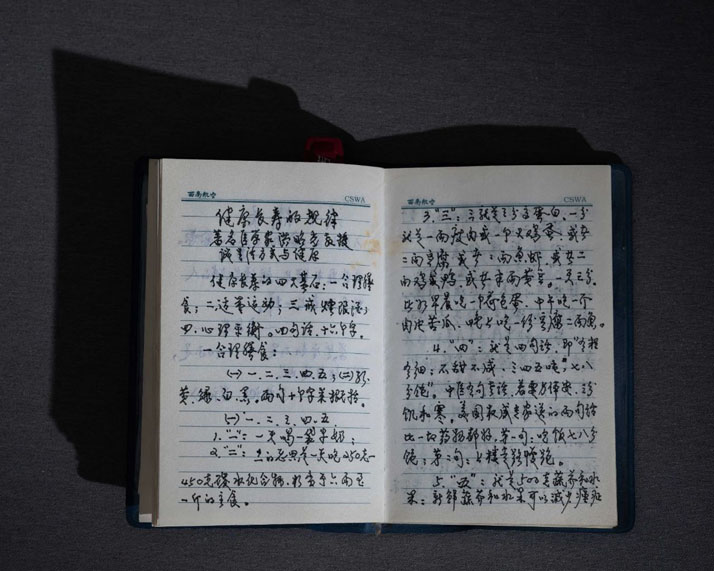 西南航空 CSWA
健康长寿的规律
著名医学家洪昭光教授
谈生活方式与健康
健康长寿的四大基石：一合理膳
食；二适量运动；三戒烟限酒；
四、心理平衡。四句话，十六个字。
一合理膳食：
㈠一、二、三、四、五，㈡红、
黄、绿、白、黑。两句十个字来概括。
㈠一、二、三、四、五
1."一"：一天喝一袋牛奶；
2."二"：的意思是一天吃250克—
450克碳水化合物，相当于六两至
一斤的主食。
西南航空 CSWA
3."三"：三就是三份高蛋白，一份
就是一两瘦肉或一个大鸡蛋，或者
二两豆腐，或者二两鱼虾，或者二
两鸡或鸭，或者半两黄豆。一天三份。
比方早晨吃一个荷包蛋，中午吃一个
肉片苦瓜，晚上吃一份豆腐二两鱼。
4."四"：就是四句话，即"有粗
有细；不甜不咸，三四五顿，七八
分饱"。中医有句老话，若要身体安，三分
饥和寒。美国权威专家送的两句话
比一切药物都好，第一句：吃饭七八分
饱；第二句：
5."五"：就是500克蔬菜和水
果：新鲜蔬菜和水果可以减少癌症